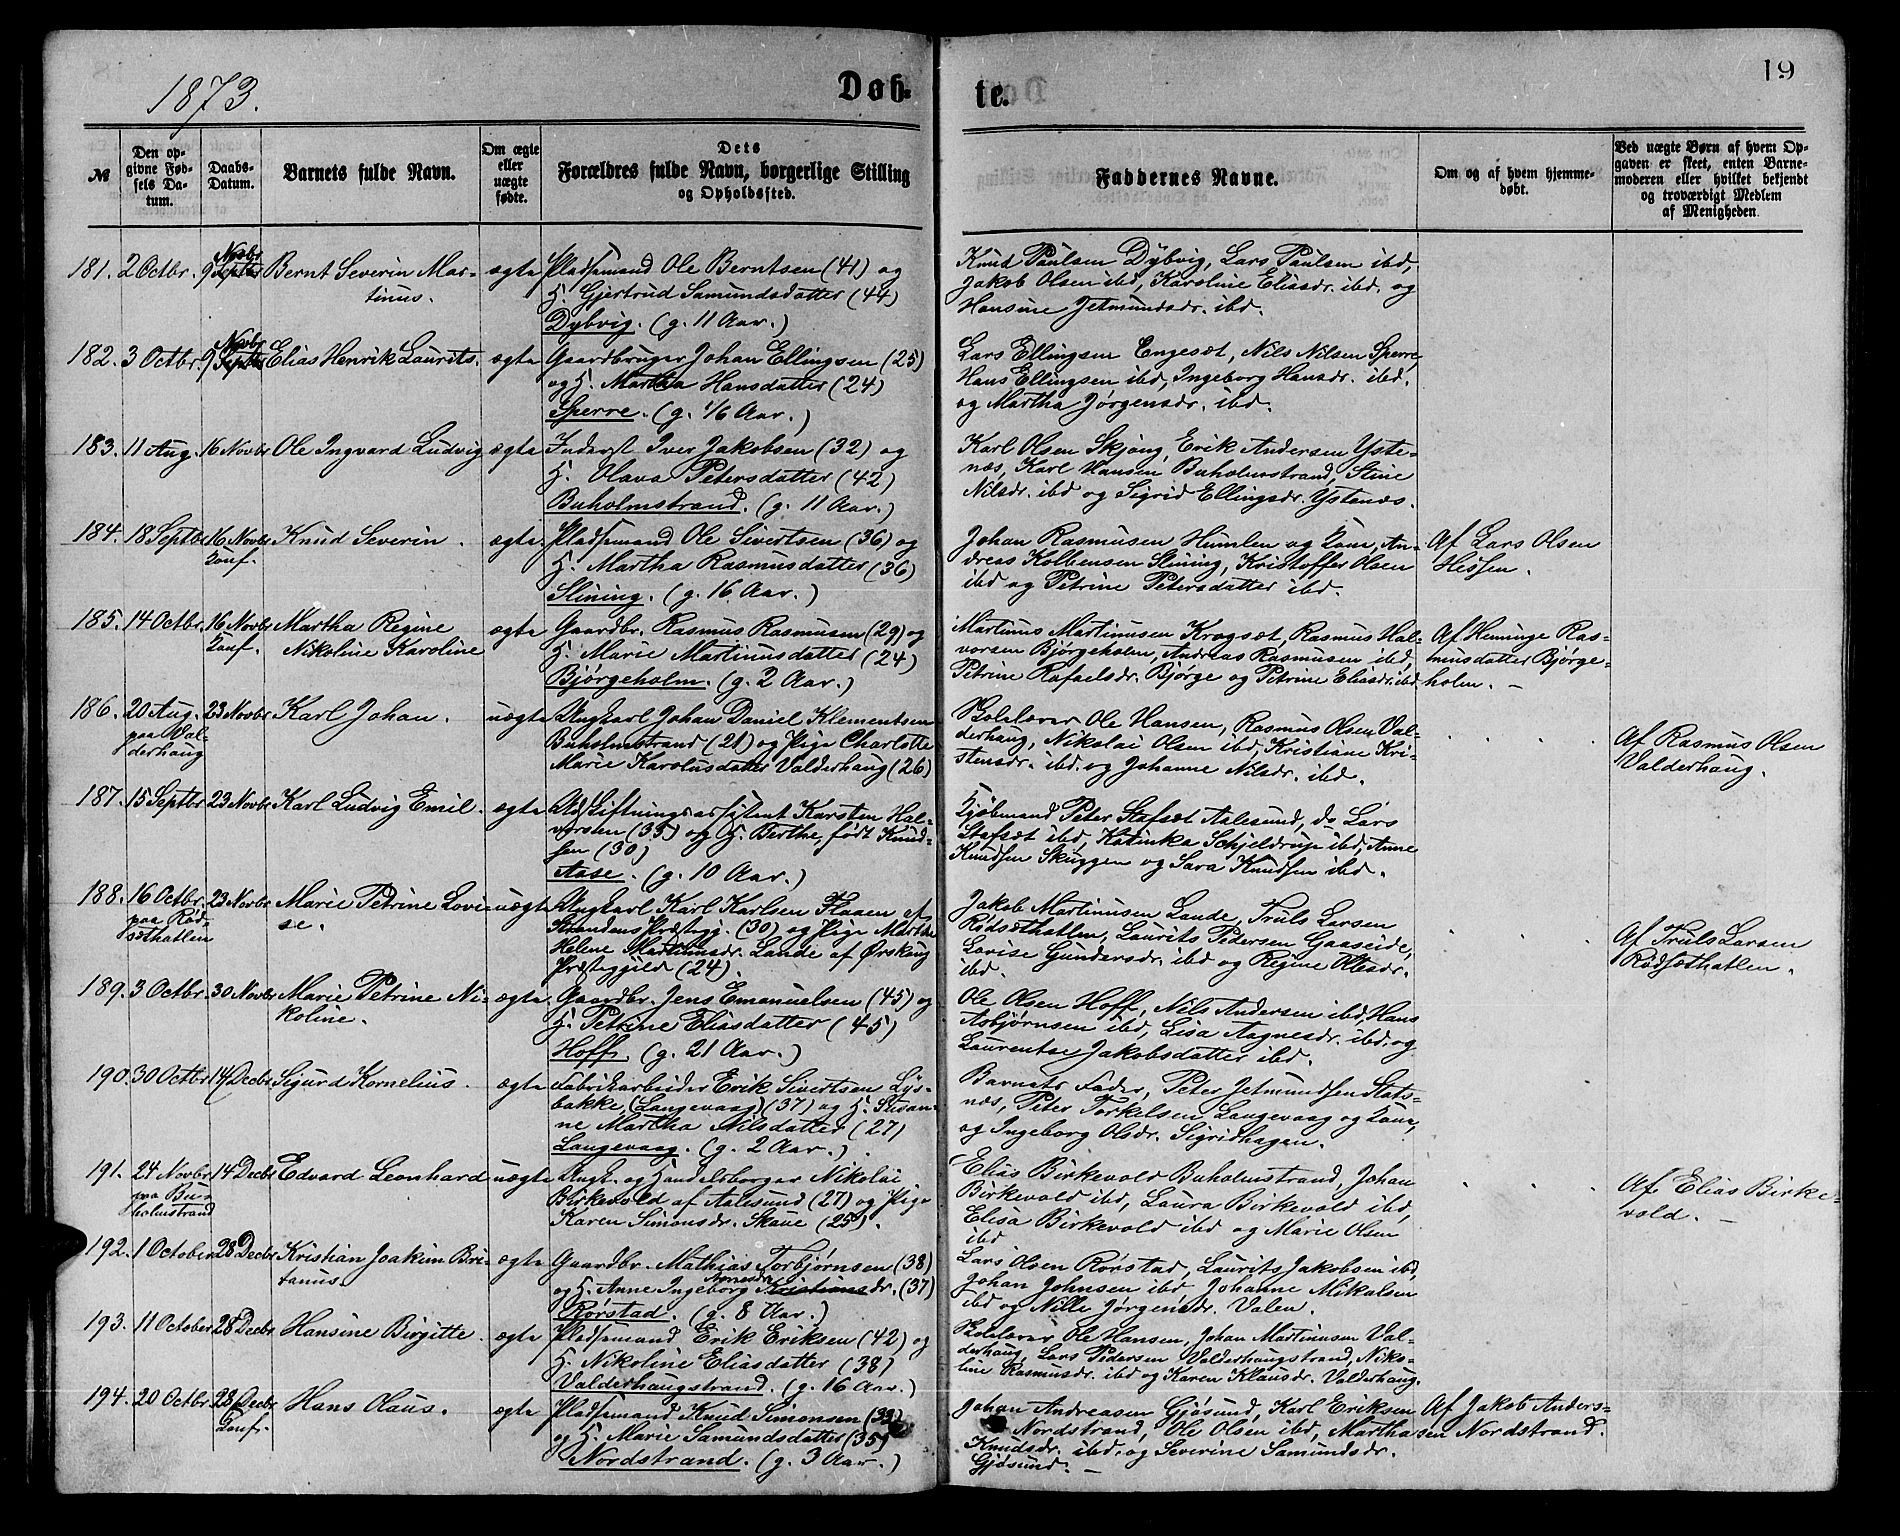 1873.
Døb-
te.
19
№
Den op-
givne Fød-
sels Da-
tum.
Daabs-
Datum.
Barnets fulde Navn.
Om ægte
eller
uægte
fødte.
Dets
Forældres fulde Navn, borgerlige Stilling
og Opholdssted.
Faddernes Navne.
Om og af hvem hjemme-
døbt.
Ved uægte Børn af hvem Op-
gaven er skeet, enten Barne-
moderen eller hvilket bekjendt
og troværdigt Medlem
af Menigheden.
181. 2 Octbr. 9 Septbr Novbr Bernt Severin Mar-
tinus.
ægte Pladsemand Ole Berntsen (41) og
H. Gjertrud Samundsdatter (44)
Dybvig. (g. 11 Aar.)
Knud Paulsen Dybvig, Lars Paulsen ibd,
Jakob Olsen ibd, Karoline Eliasdr. ibd. og
Hansine Jetmundsdr. ibd.
182. 3 Octbr. 9 Septbr Novbr Elias Henrik Laurits.
ægte Gaardbruger Johan Ellingsen (25)
og H. Martha Hansdatter (24)
Sperre. (g. 1/6 Aar.)
Lars Ellingsen Engesæt, Nils Nilsen Sperre,
Hans Ellingsen ibd, Ingeborg Hansdr. ibd.
og Martha Jørgensdr. ibd.
183. 11 Aug. 16 Novbr Ole Ingvard Ludvig
ægte Inderst Iver Jakobsen (32) og
H. Olava Petersdatter (42)
Buholmstrand. (g. 11 Aar.)
Karl Olsen Skjong, Erik Andersen Yste-
næs, Karl Hansen Buholmstrand, Stine
Nilsdr. ibd og Sigrid Ellingsdr. Ystenæs.
184. 18 Septbr 16 Novbr Knud Severin.
Conf.
ægte. Pladsemand Ole Sivertsen (36) og
H. Martha Rasmusdatter (36)
Slining. (g. 16 Aar.)
Johan Rasmusen Humlen og Kone, An-
dreas Kolbensen Slining, Kristoffer Olsen
ibd og Petrine Petersdatter ibd.
Af Lars Olsen
Hessen.
185. 14 Octbr. 16 Novbr Martha Regine
Conf. Nikoline Karoline
ægte Gaardbr. Rasmus Rasmusen (29) og
H. Marie Martinusdatter (24)
Bjørgeholm. (g. 2 Aar.)
Martinus Martinusen Kragsæt, Rasmus Hal-
vorsen Bjørgeholm, Andreas Rasmusen ibd,
Petrine Rafaelsdr. Bjørge og Petrine Eliasdr. ibd.
Af Henninge Ras-
musdatter Bjørge-
holm. –
186. 20 Aug. 23 Novbr Karl Johan.
paa Val-
derhaug
uægte Ungkarl Johan Daniel Klementsen
Buholmstrand (21) og Pige Charlotte
Marie Karolusdatter Valderhaug (26)
Skolelærer Ole Hansen, Rasmus Olsen Val-
derhaug, Nikolai Olsen ibd, Kristiane Kri-
stensdr. ibd. og Johanne Nilsdr. ibd.
Af Rasmus Olsen
Valderhaug.
187. 15 Septbr 23 Novbr Karl Ludvig Emil.
ægte. Udskiftningsassistent Karsten Hal-
vorsen (35) og H. Berthe, født Knud-
sen (30)
Aase. (g. 10 Aar.)
Kjøbmand Peter Stafsæt Aalesund, do Lars
Stafsæt ibd, Katinka Schjeldrup ibd, Anne
Knudsen Skuggen og Sara Knudsen ibd.
188. 16 Octbr. 23 Novbr Marie Petrine Lovi-
paa Rød- se.
sæthatlen
uægte Ungkarl Karl Karlsen Flaaen af
Strandens Præstegj. (30) og Pige Marthe
Helene Martinusdr. Lande af Ørskoug
Præstegjeld (24).
Jakob Martinusen Lande, Truls Larsen
Rødsæthatlen, Laurits Pedersen Gaaseide,
Lovise Gundersdr. ibd og Regine Olesdr.
ibd.
Af Truls Larsen
Rødsæthatlen.
189. 3 Octbr. 30 Novbr Marie Petrine Ni-
koline.
ægte. Gaardbr. Jens Emanuelsen (45) og
H. Petrine Eliasdatter (45)
Hoff. (g. 21 Aar.)
Ole Olsen Hoff, Nils Andersen ibd, Hans
Asbjørnsen ibd, Lisa Aagnesdr. ibd. og
Laurentse Jakobsdatter ibd.
190. 30 Octbr. 14 Decbr Sigurd Kornelius.
ægte Fabrikarbeider Erik Sivertsen Lys-
bakke, (Langevaag) (37) og H. Susan-
ne Martha Nilsdatter (27)
Langevaag. (g. 2 Aar.)
Barnets Fader, Peter Jetmundsen Slots-
næs, Peter Torkelsen Langevaag og Kone,
og Ingeborg Olsdr. Sigridhagen.
191. 24 Novbr 14 Decbr Edvard Leonhard
paa Bu-
holmstrand
uægte Ungk. og Handelsborger Nikolai
Birkevold af Aalesund (27) og Pige
Karen Simonsdr. Skaue (25).
Elias Birkevold Buholmstrand, Johan
Birkevold ibd, Laura Birkevold ibd,
Elisa Birkevold ibd og Marie Olsen
ibd
Af Elias Birke-
vold. –
192. 1 October 28 Decbr Kristian Joakim Bri-
tanus
ægte Gaardbr. Mathias Torbjørnsen (38)
og H. Anne Ingeborg Kristiansdr. (37)
Rørstad. (g. 8 Aar.)
Lars Olsen Rørstad, Laurits Jakobsen ibd,
Johan Johnsen ibd, Johanne Mikalsen
ibd og Nille Jørgensdr. Valen.
193. 11 October 28 Decbr Hansine Birgitte.
ægte Pladsemand Erik Eriksen (42) og
H. Nikoline Eliasdatter (38)
Valderhaugstrand. (g. 16 Aar.)
Skolelærer Ole Hansen, Johan Martinusen Val-
derhaug, Lars Pedersen Valderhaugstrand, Niko-
line Rasmusdr. ibd og Karen Klausdr. Valderhaug.
194. 20 Octbr 28 Decbr Hans Olaus.
Conf.
ægte Pladsemand Knud Simonsen (33)
og H. Marie Samundsdatter (35)
Nordstrand. (g. 3 Aar.)
Johan Andreasen Gjøsund, Karl Eriksen
Nordstrand, Ole Olsen ibd, Martha
Knudsdr. ibd. og Severine Samundsdr.
Gjøsund. –
Af Jakob Anders-
sen Nordstrand.